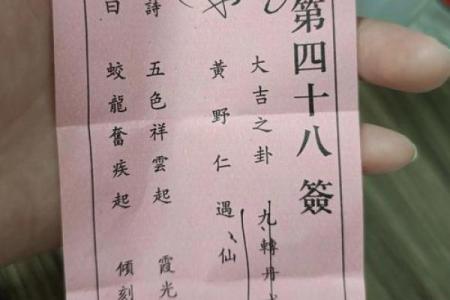 第四十八簽
大吉之卦 九轉丹
黃野仁遇仙
詩 五色祥雲起 霞光
曰 蛟龍奮疾起 傾刻